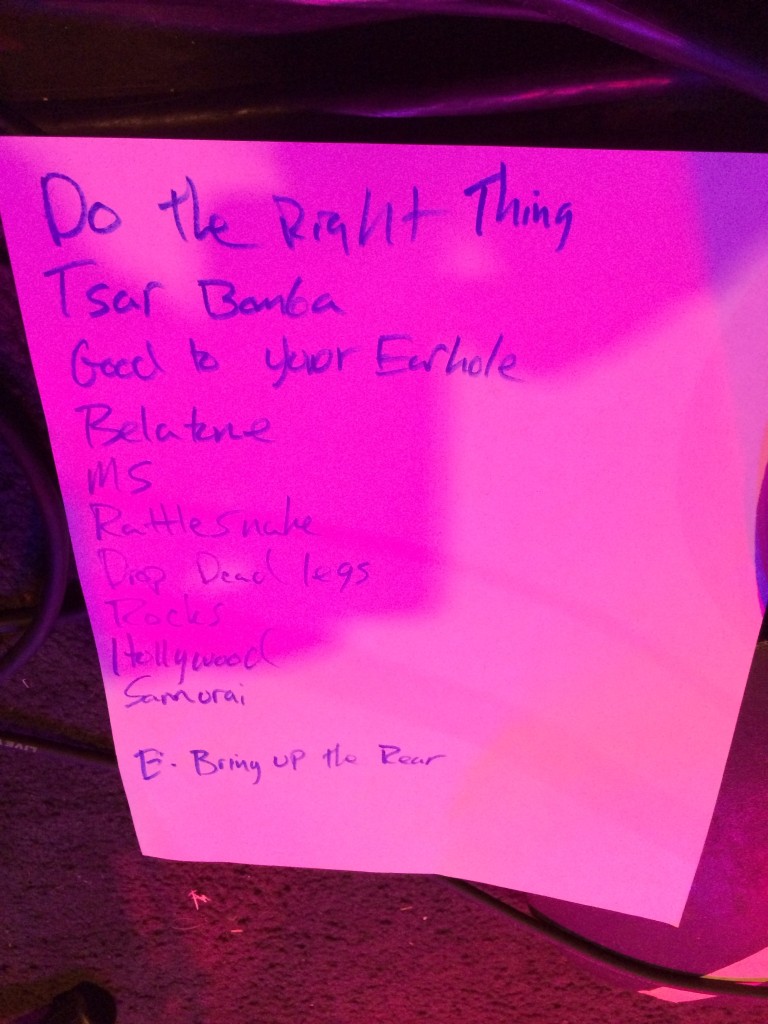 Do the Right Thing
Tsar Bomba
Good to your Earhole
Belaterne
MS
Rattlesnake
Drop Dead legs
Rocks
Hollywood
Samurai
E. Bring up the Rear